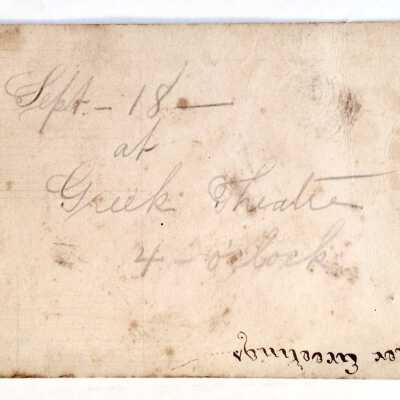 Sept. – 18 –
at
Greek Theatre
4 – o'clock
Greetings